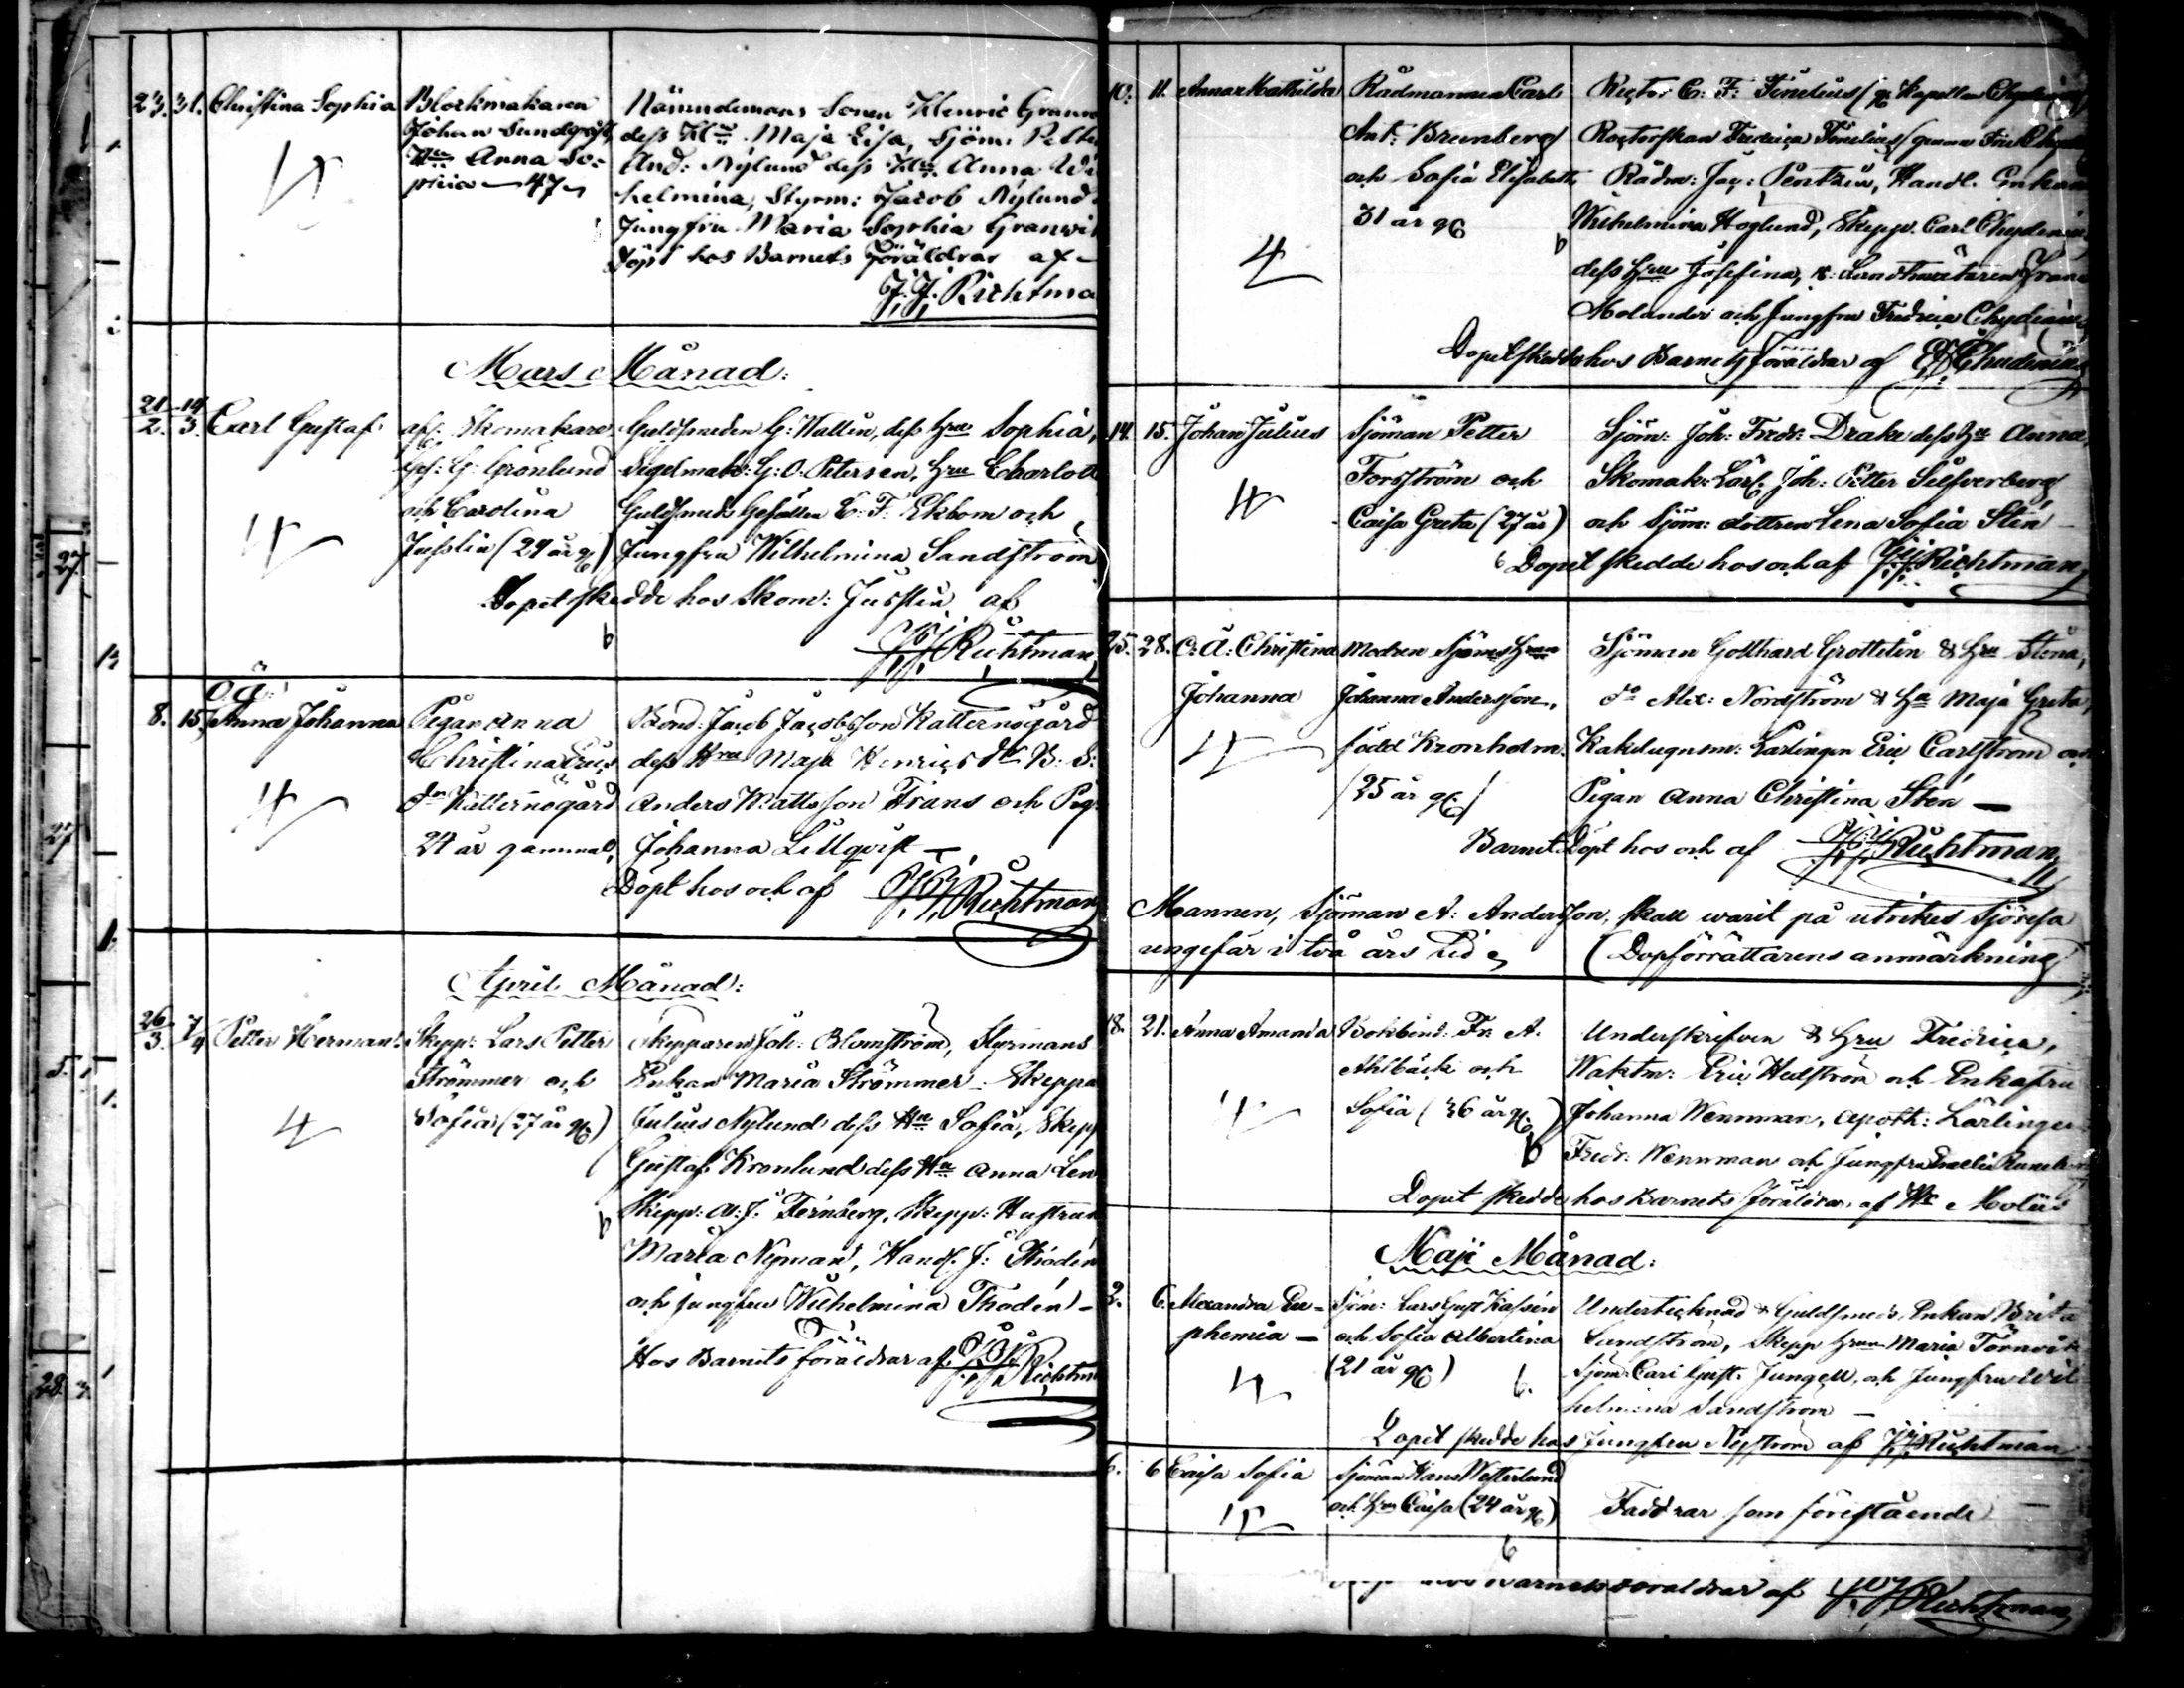 23. 31. Christina Sophia
Blockmakaren
Johan Sundqvist,
Hu Anna So-
phia 47
Nämndemans Sonen Henric Granw
dess Hu Maja Lisa, Sjöm: Pette
And: Nylund dess Hu Anna Wil
helmina, Styrm: Jacob Nylund
Jungfru Maria Sophia Granwi
Döpt hos Barnets Föräldrar af
J. J. Richtma
Mars Månad:
21/2. 14/3. Carl Gustaf
Skomakare
Ges: G: Grönlund
och Carolina
Jusslin (24 år g)
Guldsmeden G: Wallin, dess Hru Sophia,
Segelmak: G: O. Petersen, Hru Charlott
Guldsmeds Gesällen C: F: Ekbom och
Jungfru Wilhelmina Sandström
Dopet skedde hos Skom: Jusslin af
J. J. Richtman
8. 15. o ä: Anna Johanna
Pigan Anna
Christina Erics
dr Katternögård
24 år gammal,
Bond: Jacob Jacobsson Katternögård
dess Hru Maja Henricsdr B: S:
Anders Mattsson Frans och Pig:
Johanna Lillqvist
Döpt hos och af J. J. Richtman
April Månad:
26/3. 7/4 Petter Herman
Skepp: Lars Petter
Strömmer och
Sofia (27 år g)
Skepparen Joh: Blomström, Styrmans
Enkan Maria Strömmer, Skeppa
Julius Nylund dess Hu Sofia, Skepp
Gustaf Kronlund dess Hu Anna Len
Skepp: A: J: Törnberg, Skepp: Hustrun
Maria Nyman, Handl. J: Thodén
och jungfru Wilhelmina Thodén
Hos Barnets föräldrar af J. J. Richtm
10. 11. Anna Mathilda
Rådmannen Carl
Ant: Brunberg
och Sofia Elisabeth
31 år g
Rector C: F:
Rådm: Jac: Pentzin, Handl. Enkan
Wilhelmina Hoglund, Skepp. Carl Chydenius
dess Hru Josefina, v: Landtmätaren Frans
Molander och Jungfru Fredrica Chydenius
Dopet skedde hos Barnets föräldrar af Chydenius
14. 15. Johan Julius
Sjöman Petter
Forsström och
Caisa Greta (27 år)
Sjöm: Joh: Fredr: Drake dess Hu Anna,
Skomak: Lärl. Joh: Petter Silfverberg
och Sjöm: dottren Lena Sofia Sten
Dopet skedde hos och af J. J. Richtman
25. 28. O: ä: Christina
Johanna
Modren Sjöms Hrun
Johanna Andersson,
född Kronholm.
(25 år g)
Sjöman Gotthard Grottelin & Hru Stina,
do Alex: Nordström & Hu Maja Greta,
Kakelugnsm: Lärlingen Eric Carlström och
Pigan Anna Christina Stén
Barnet Döpt hos och af J. J. Richtman
Mannen, Sjöman A: Andersson, skall warit på utrikes Sjöresa
ungefär i två års tid
(Dopförrättarens anmärkning)
18. 21. Anna Amanda
Bokbind: Fr: A.
Ahlbäck och
Sofia (36 år g)
Underskrifven & Hru Fredrica,
Waktm: Eric Hedström och Enkafru
Johanna Wennman, Apoth: Lärlingen
Fredr: Wennman och Jungfru
Dopet skedde hos Barnets föräldrar af
Maji Månad:
2. 6. Alexandra Eu-
phemia
Sjöm: Lars Gust Kassén
och Sofia Albertina
(21 år g)
Undertecknad & Guldsmeds Enkan Brita
Lundström, Skepp Hrun Maria Törnvik
Sjöm: Carl Gust: Jungell, och Jungfru Wil
helmina Sandström
Dopet skedde hos Jungfru Nyström af J. J. Richtman
6. 6 Caisa Sofia
Sjöman Hans Westerlund
och Hru Caisa (24 år g)
Faddrar som förestående
Barnets föräldrar af J. J. Richtman